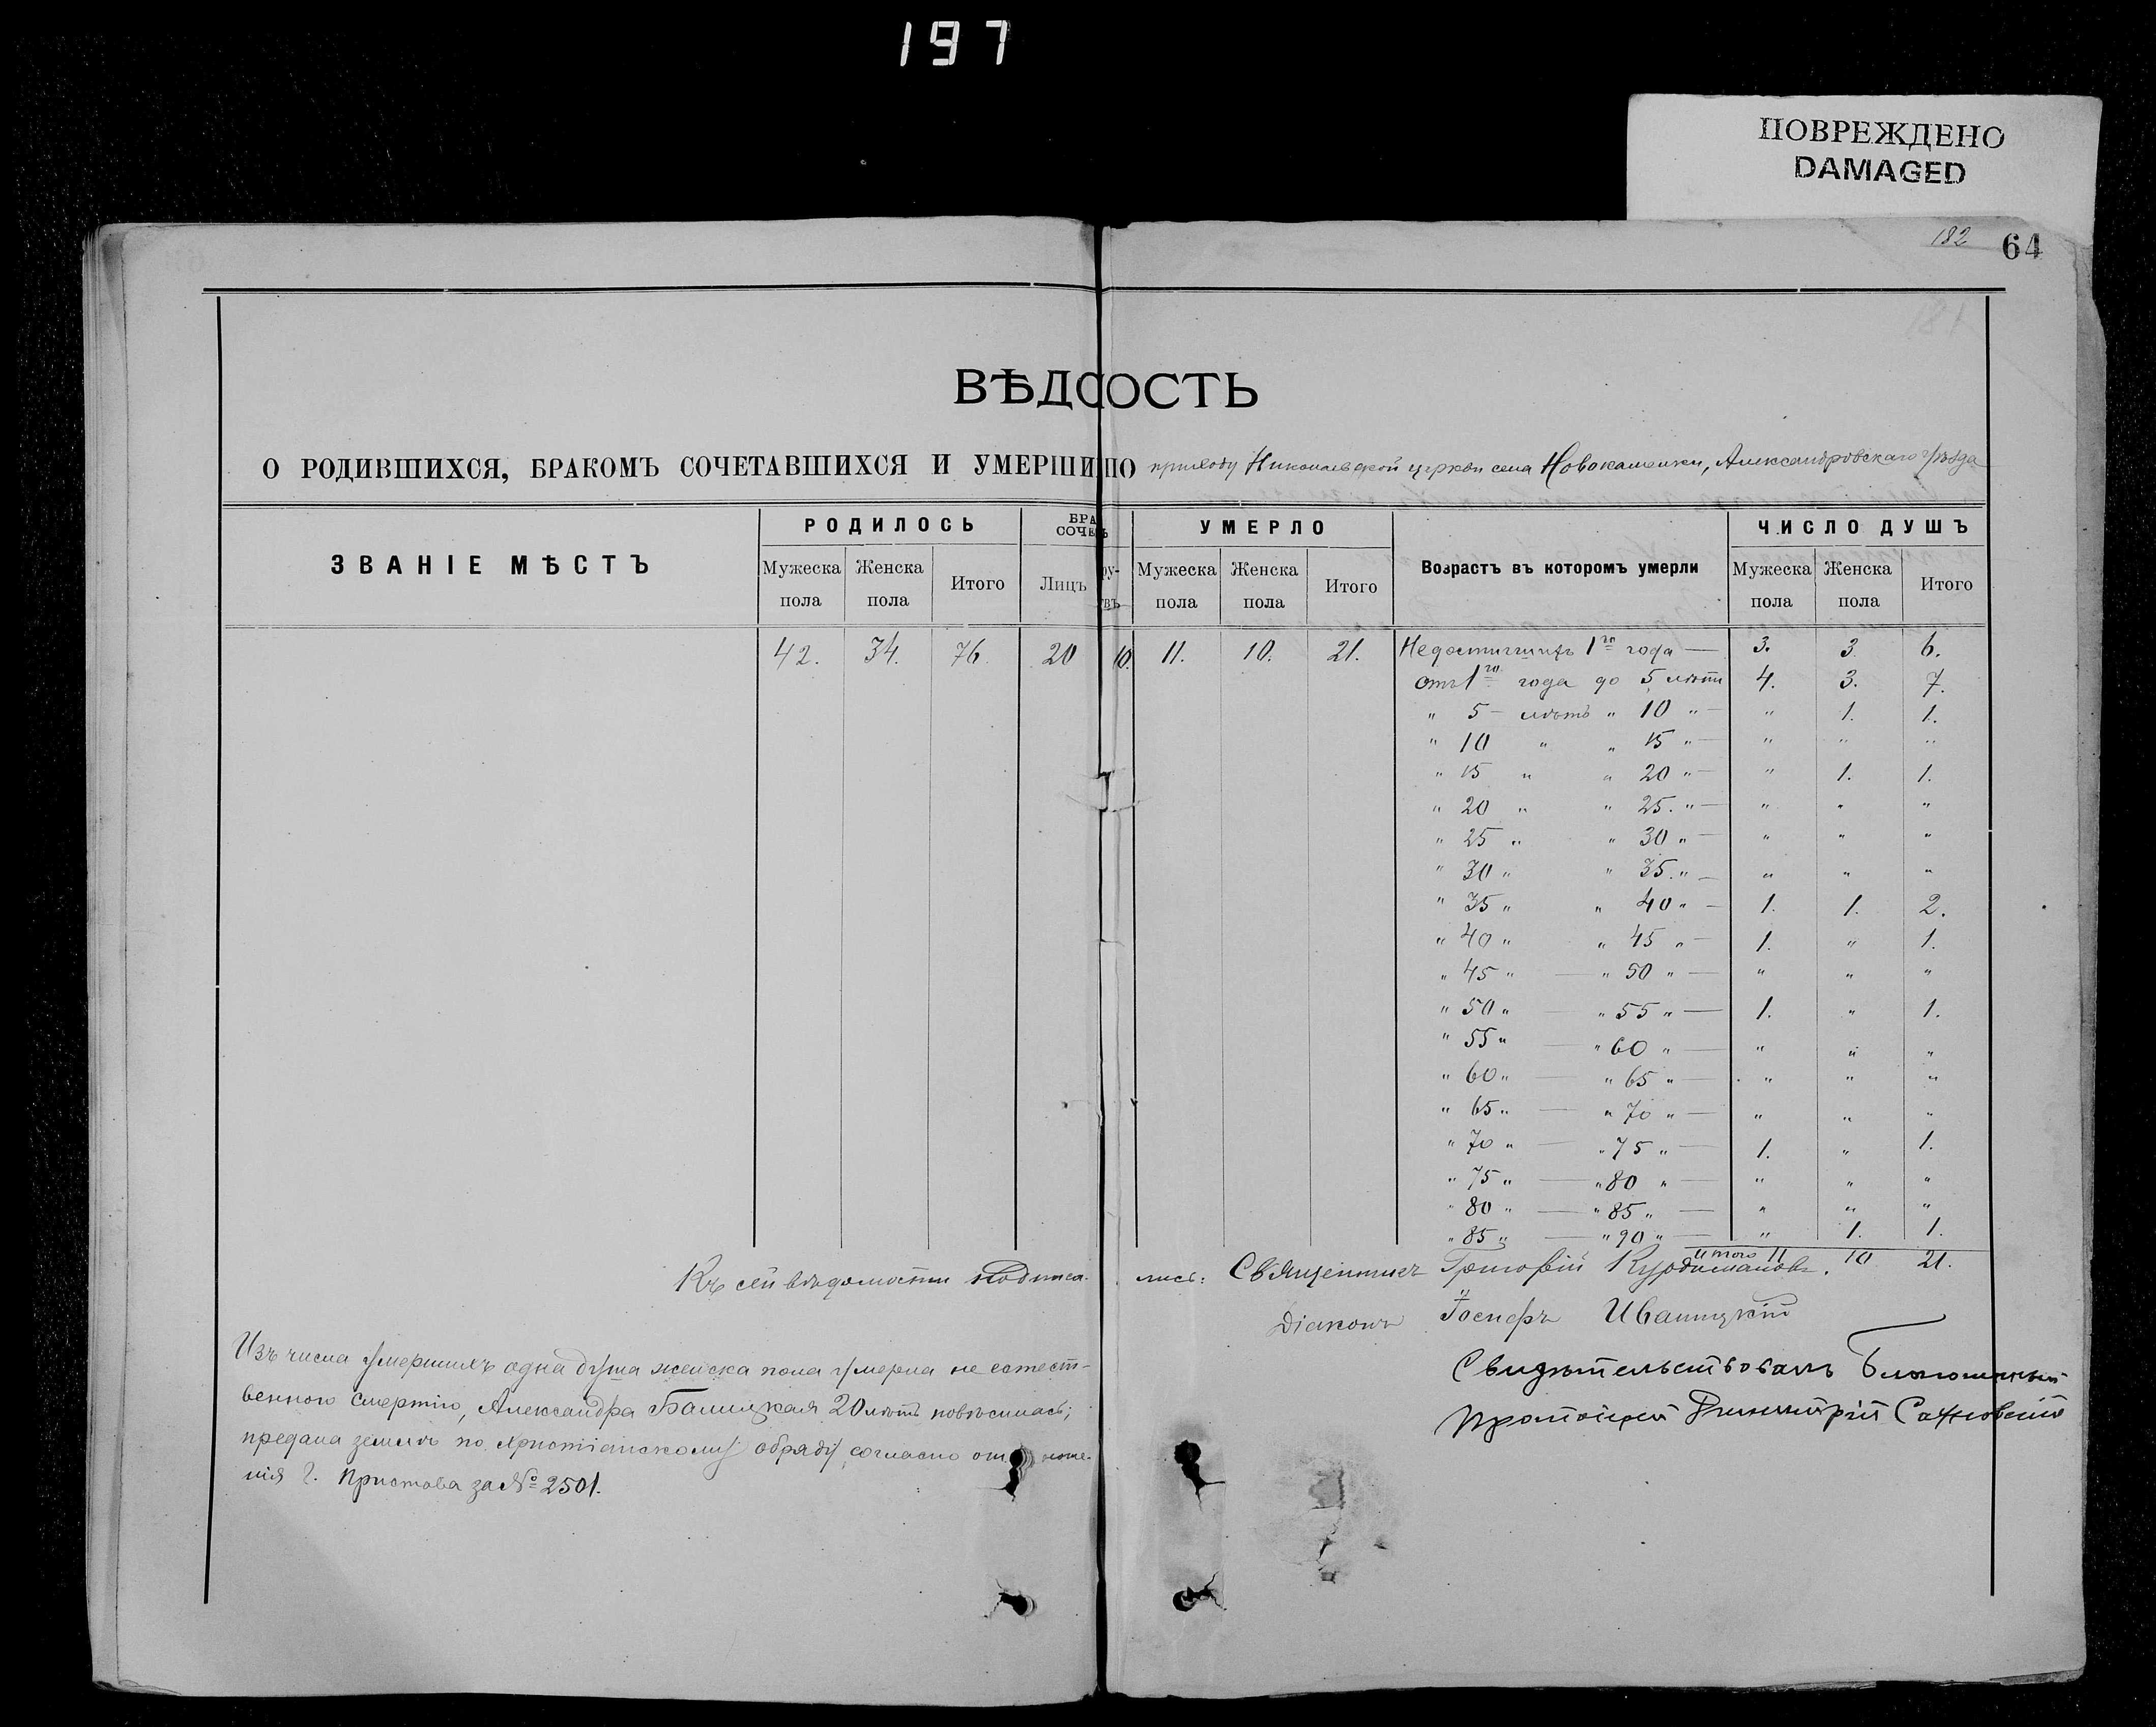 197
ПОВРЕЖДЕНО
DAMAGED
182 64
181
ВѢДООСТЬ
О РОДИВШИХСЯ, БРАКОМЪ СОЧЕТАВШИХСЯ И УМЕРШИ ПО приходу Николаевской церкви села Новокаменки, Александровскаго уѣзда
ЗВАНІЕ МѢСТЪ
РОДИЛОСЬ
БРА
СОЧЕ Ъ
УМЕРЛО
Возрастъ въ которомъ умерли
ЧИСЛО ДУШЪ
Мужеска пола Женска пола Итого Лицъ ру- въ Мужеска пола Женска пола Итого Мужеска пола Женска пола Итого
42. 34. 76. 20 10. 11. 10. 21. Недостигшихъ 1го года — 3. 3 6.
отъ 1го года до 5 лѣтъ 4. 3. 7.
" 5 — лѣтъ " 10 " — " 1. 1.
" 10 " " 15 " — " " "
" 15 " " 20 " — " 1. 1.
" 20 " " 25. " — " " "
" 25 " " 30 " — " " "
" 30 " " 35. " — " " "
" 35 " " 40 " — 1. 1. 2.
" 40 " " 45 " — 1. " 1.
" 45 " — " 50 " — " " "
" 50 " — " 55 " — 1. " 1.
" 55 " — " 60 " — " " "
" 60 " — " 65 " — " " "
" 65 " — " 70 " — " " "
" 70 " — " 75 " — 1. " 1.
" 75 " — " 80 " — " " "
" 80 " — " 85 " — " " "
" 85 " — " 90 " — " 1. 1.
Итого 11. 10 21.
Къ сей вѣдомости подписа- лись: Священникъ Григорій Курдимановъ.
Діаконъ Іосифъ Иваницкій
Изъ числа умершихъ одна душа женска пола умерла не естест-
венною смертію, Александра Балицкая 20 лѣтъ повѣсилась;
предана землѣ по христіанскому обряду, согласно от ноше-
нія Г. Пристава за № 2501.
Свидѣтельствовалъ Благочинный
Протоіерей Димитрій